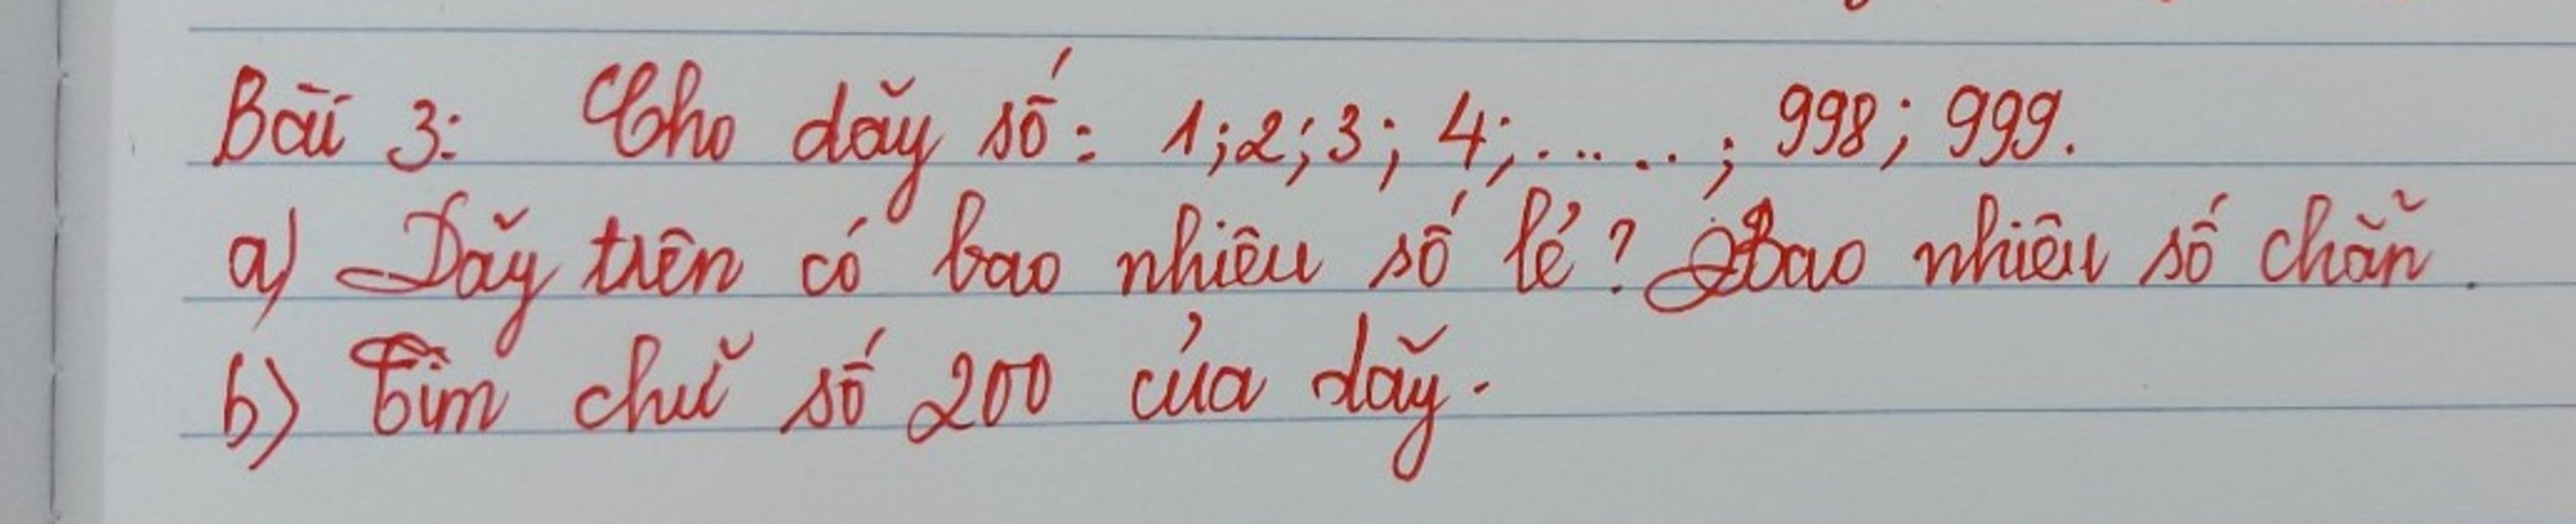 Bài 3: Cho dãy số: 1; 2; 3; 4; .....; 998; 999.
a) Dãy trên có bao nhiêu số lẻ? Bao nhiêu số chẵn.
b) Tìm chữ số 200 của dãy.